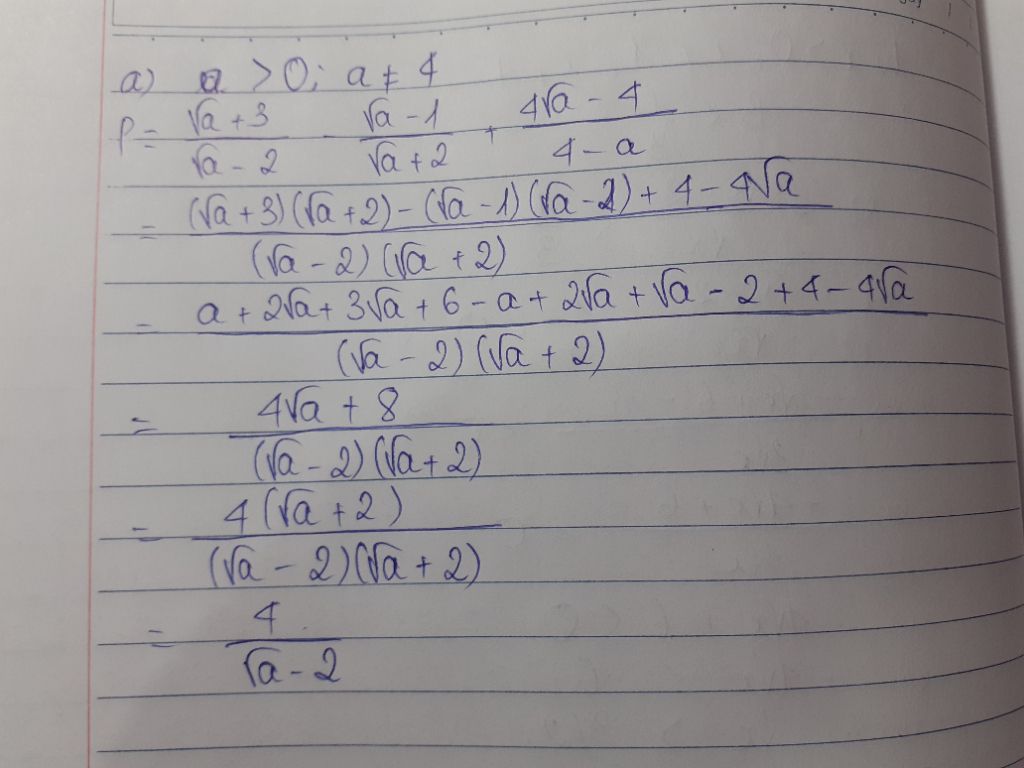 a) a > 0; a ≠ 4
P = (√a + 3)/(√a - 2) - (√a - 1)/(√a + 2) + (4√a - 4)/(4 - a)
= ((√a + 3)(√a + 2) - (√a - 1)(√a - 2) + 4 - 4√a)/((√a - 2)(√a + 2))
= (a + 2√a + 3√a + 6 - a + 2√a + √a - 2 + 4 - 4√a)/((√a - 2)(√a + 2))
= (4√a + 8)/((√a - 2)(√a + 2))
= (4(√a + 2))/((√a - 2)(√a + 2))
= 4/(√a - 2)